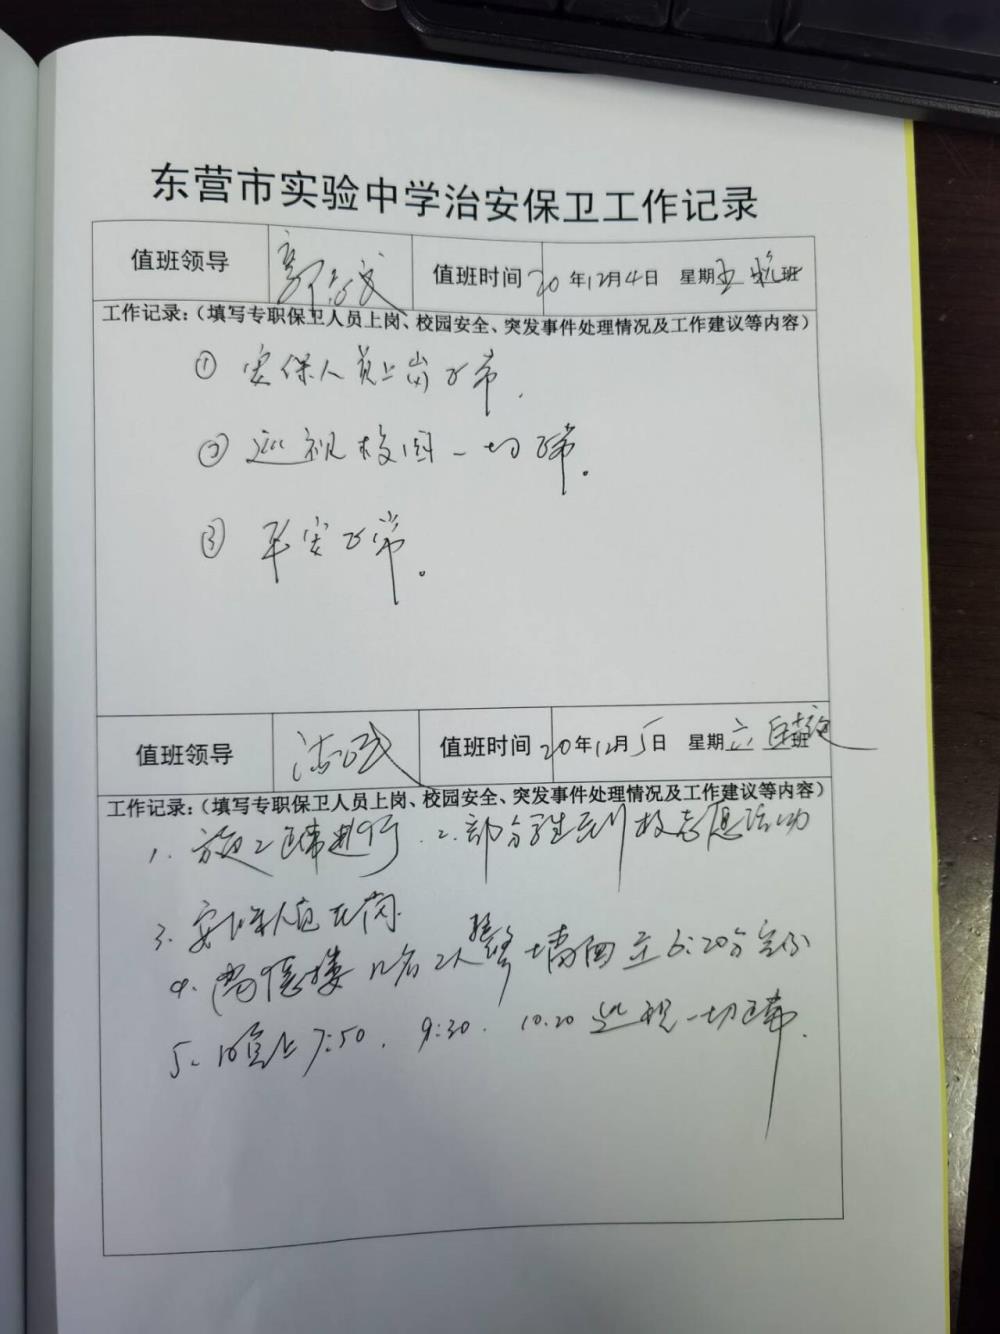 东营市实验中学治安保卫工作记录
值班领导 值班时间 20年12月4日 星期五 晚班
工作记录:(填写专职保卫人员上岗、校园安全、突发事件处理情况及工作建议等内容)
① 安保人员上岗正常.
② 巡视校园一切正常。
③ 平安正常。
值班领导 值班时间 20年12月5日 星期六 班
工作记录:(填写专职保卫人员上岗、校园安全、突发事件处理情况及工作建议等内容)
1. 施工正常进行. 2. 部分学生到校志愿活动
3. 安保人员在岗.
4. 楼 墙面 6:20分
5. 晚上7:50. 9:30. 10.20 巡视一切正常.